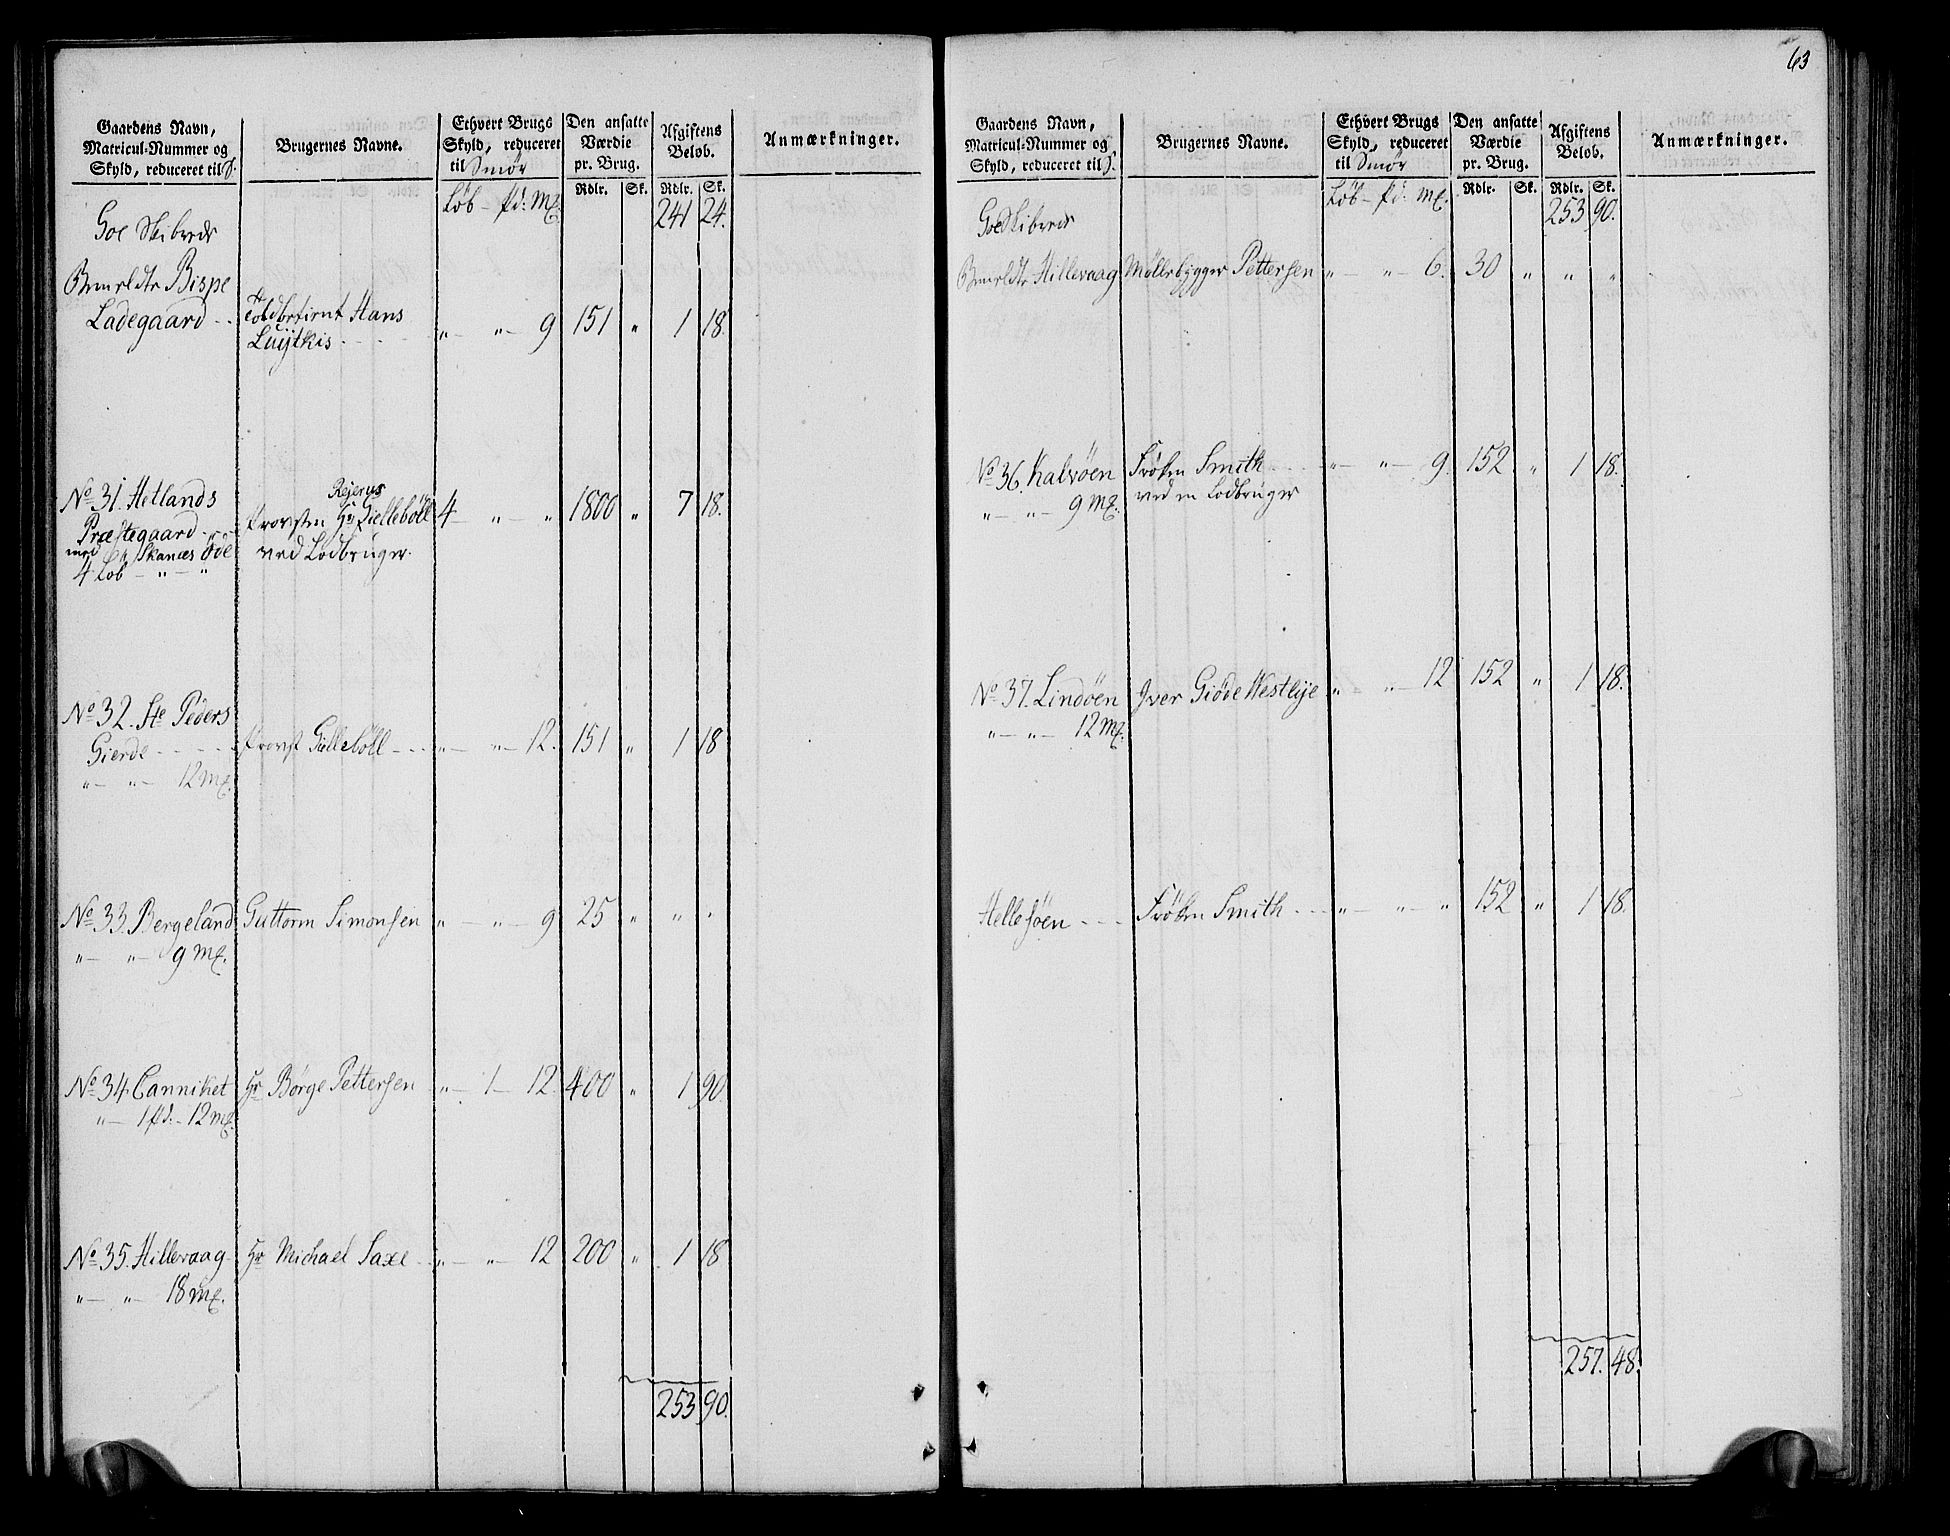 63
Gaardens Navn, Matricul-Nummer og Skyld, reduceret til S.
Brugernes Navne.
Ethvert Brugs Skyld, reduceret til Smør
Den ansatte Værdie pr. Brug.
Afgiftens Beløb.
Anmærkninger.
Løb — pd: mk. Rdlr. Sk. Rdlr. Sk.
Goe Skibrede 241 24.
Benævldte Bispe
Ladegaard Toldbetient Hans " — " — 9 151 " 1 18.
Luijtkis
No 31. Hetlands Rejerus
Præstegaard Provsten Hr Giellebøll 4 — " — " 1800 " 7 18.
med Skanæs Øde ved Lodbruger.
4 Løb — " — "
No 32. Ste Peders
Gierde Provst Giellebøll " — " — 12. 151 " 1 18
" — " — 12 mk.
No 33. Bergeland Guttorm Simonsen " — " — 9 25 " " "
" — " — 9 mk.
No 34. Canniket Hr Børge Pettersen " — 1 — 12. 400 " 1 90.
" — 1 pd: — 12 mk.
No 35. Hillevaag Hr Michael Saxe " — " — 12 200 " 1 18
" — " — 18 mk.
253 90.
Gaardens Navn, Matricul-Nummer og Skyld, reduceret til S.
Brugernes Navne.
Ethvert Brugs Skyld, reduceret til Smør
Den ansatte Værdie pr. Brug.
Afgiftens Beløb.
Anmærkninger.
Løb — pd: mk. Rdlr. Sk. Rdlr. Sk.
Goe Skibrede 253 90.
Hillevaag Møllebygger Pettersen " — " — 6. 30 " " "
No 36. Kalvøen Frøken Smith " — " — 9. 152 " 1 18.
" — " — 9 mk. ved en Lodbruger
No 37. Lindøen Iver Giøde Westlye " " — 12 152 " 1 18.
" — " — 12 mk.
Hellesøen Frøken Smith " — " — " 152 " 1 18.
257. 48.